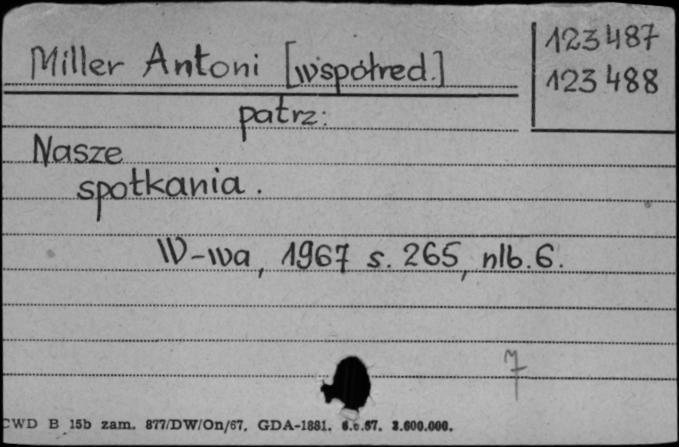 Miller Antoni [współred.]
123487
123488
patrz:
Nasze
spotkania.
W-wa, 1967 s. 265, nlb. 6.
CWD B 15b zam. 877/DW/On/67. GDA-1881. 3.600.000.